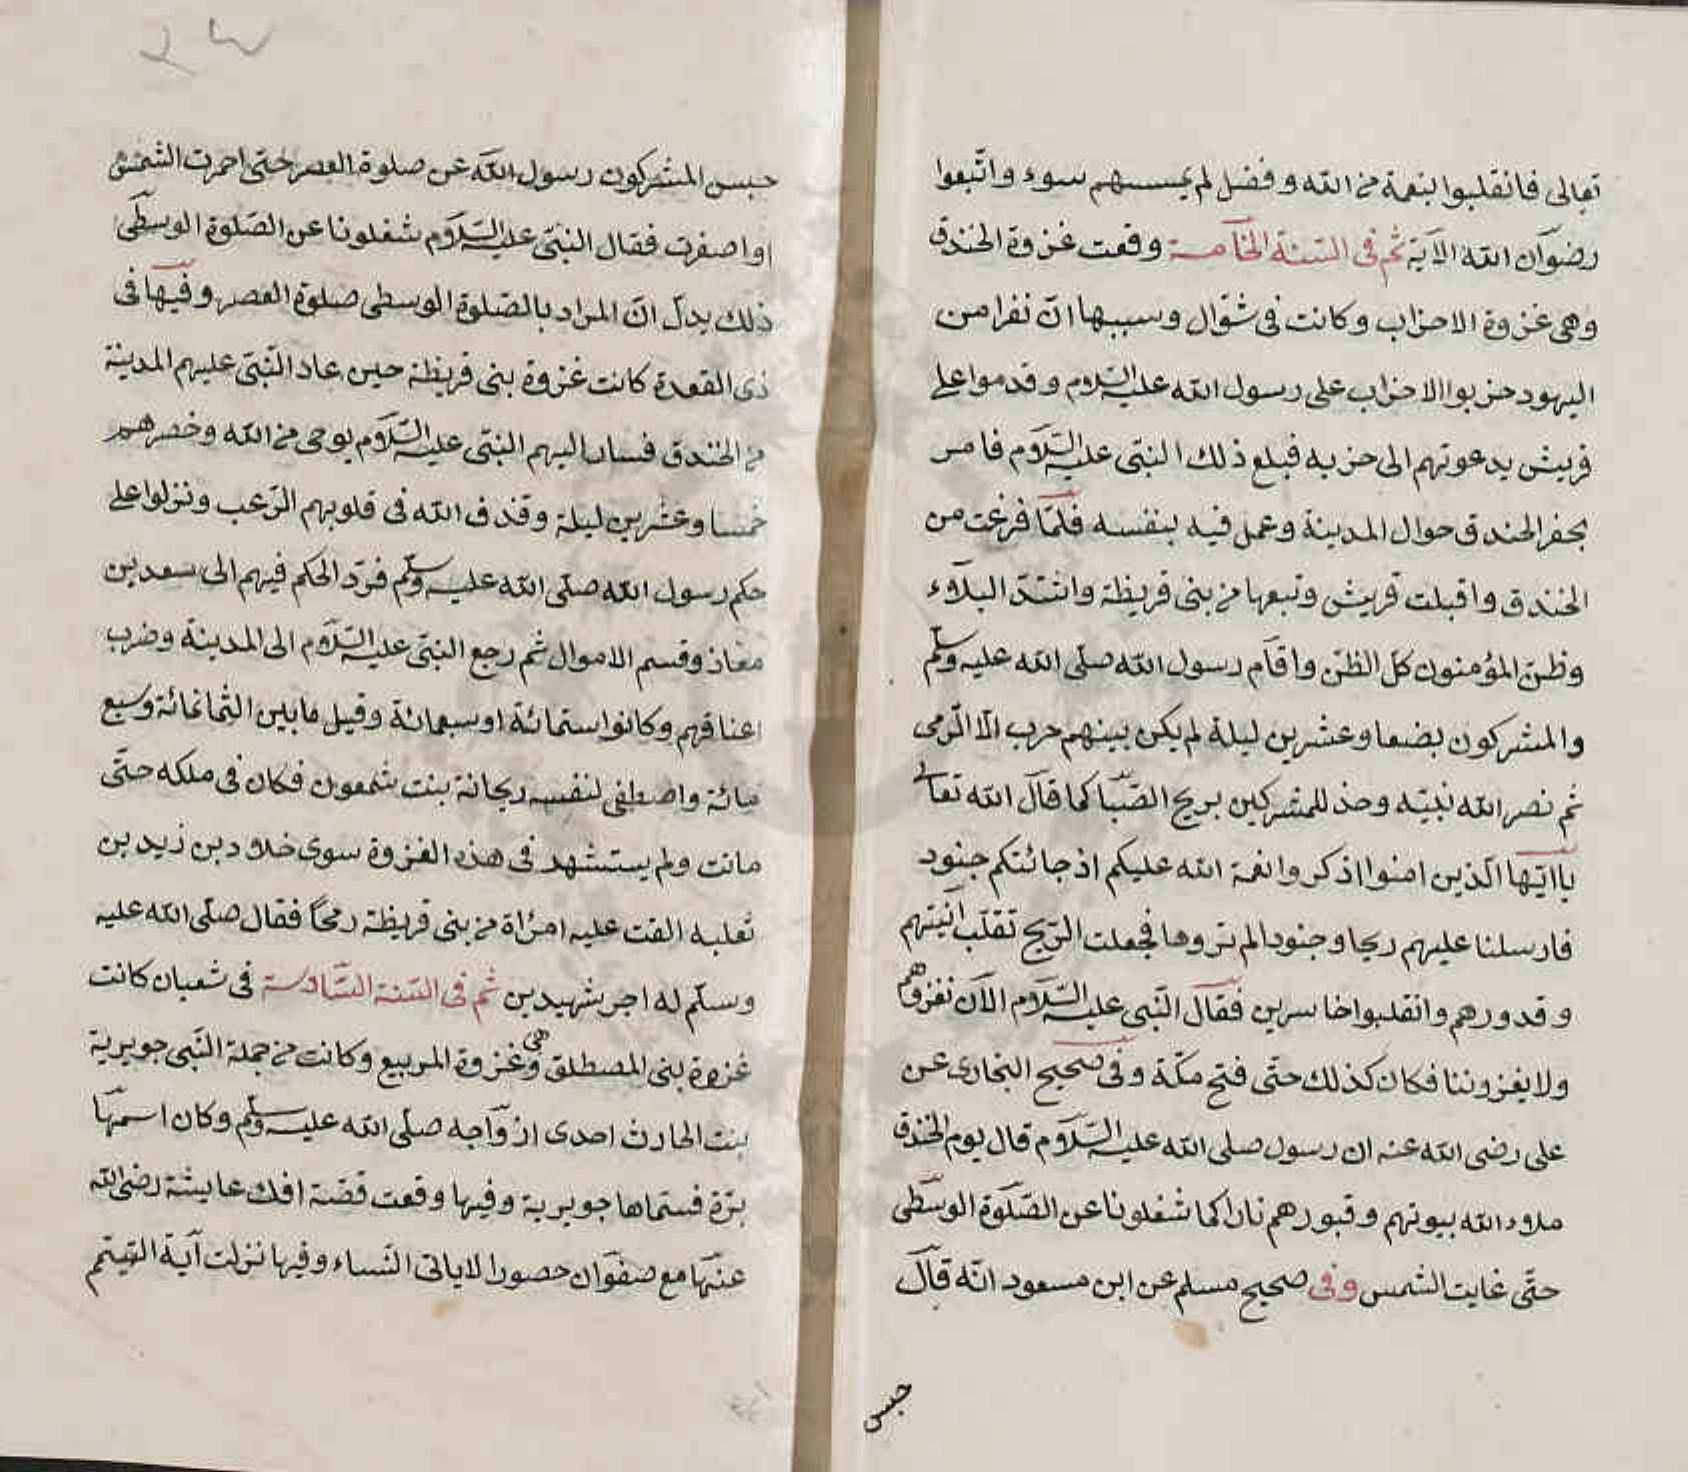 تعالى فانقلبوا بنعمة من الله وفضل لم يمسسهم سوء واتّبعوا
رضوان الله الآية ثم فى السّنة الخامسة وقعت غزوة الخندق
وهى غزوة الاحزاب وكانت فى شوّال وسببها انّ نفرا من
اليهود حزبوا الاحزاب على رسول الله عليه السّلام وقدموا على
قريش يدعوتهم الى حزبه فبلغ ذلك النبىّ عليه السّلام فامر
بحفر الخندق حوال المدينة وعمل فيه بنفسه فلمّا فرغت من
الخندق واقبلت قريش وتبعها من بنى قريظة واشتدّ البلاء
وظنّ المؤمنون كلّ الظنّ واقام رسول الله صلّى الله عليه وسلّم
والمشركون بضعا وعشرين ليلة لم يكن بينهم حرب الّا الرّمى
ثم نصر الله نبيّه وخذ للمشركين بريح الصّبا كما قال الله تعالى
يا ايّها الّذين امنوا اذكروا نعمة الله عليكم اذ جائتكم جنود
فارسلنا عليهم ريحا وجنودا لم تروها فجعلت الرّيح تقلّب انيتهم
وقدورهم وانقلبوا خاسرين فقال النّبى عليه السّلام الآن نغزوهم
ولا يغزوننا فكان كذلك حتّى فتح مكّة وفى صحيح البخارى عن
على رضى الله عنه ان رسول صلى الله عليه السّلام قال يوم الخندق
ملاء الله بيوتهم وقبورهم نارا كما شغلونا عن الصّلوة الوسطى
حتّى غابت الشمس وفى صحيح مسلم عن ابن مسعود انّه قال
حبس
حبس المشركون رسول الله عن صلوة العصر حتى احمرت الشمس
او اصفرت فقال النبىّ عليه السّلام شغلونا عن الصّلوة الوسطى
ذلك يدلّ انّ المراد بالصّلوة الوسطى صلوة العصر وفيها فى
ذى القعدة كانت غزوة بنى قريظة حين عاد النّبىّ عليهم المدينة
من الخندق فسار اليهم النبىّ عليه السّلام بوحى من الله وخصرهم
خمسا وعشرين ليلة وقذف الله فى قلوبهم الرّعب ونزلوا على
حكم رسول الله صلّى الله عليه وسلّم فردّ الحكم فيهم الى سعد بن
معاذ وقسم الاموال ثم رجع النبىّ عليه السّلام الى المدينة وضرب
اعناقهم وكانوا ستمائة او سبعمائة وقيل ما بين الثمانمائة وسبع
مائة واصطفى لنفسه ريحانة بنت شمعون فكان فى ملكه حتّى
ماتت ولم يستشهد فى هذه الغزوة سوى خلاد بن زيد بن
ثعلبه القت عليه امرأة من بنى قريظة رمحًا فقال صلّى الله عليه
وسلّم له اجر شهيدين ثم فى السّنة السّادسة فى شعبان كانت
غزوة بنى المصطلق وهى غزوة المريبيع وكانت من جملة النّبى جويرية
بنت الحارث احدى ازواجه صلّى الله عليه وسلّم وكان اسمها
برّة فسمّاها جويرية وفيها وقعت قصّة افك عايشة رضى الله
عنها مع صفوان حصورا لا ياتى النّساء وفيها نزلت آية التّيمّم